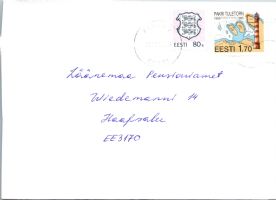 PAKRI TULETORN
EESTI 80s
EESTI 1.70
Läänemaa Pensioniamet
Wiedemanni 14
Haapsalu
EE3170